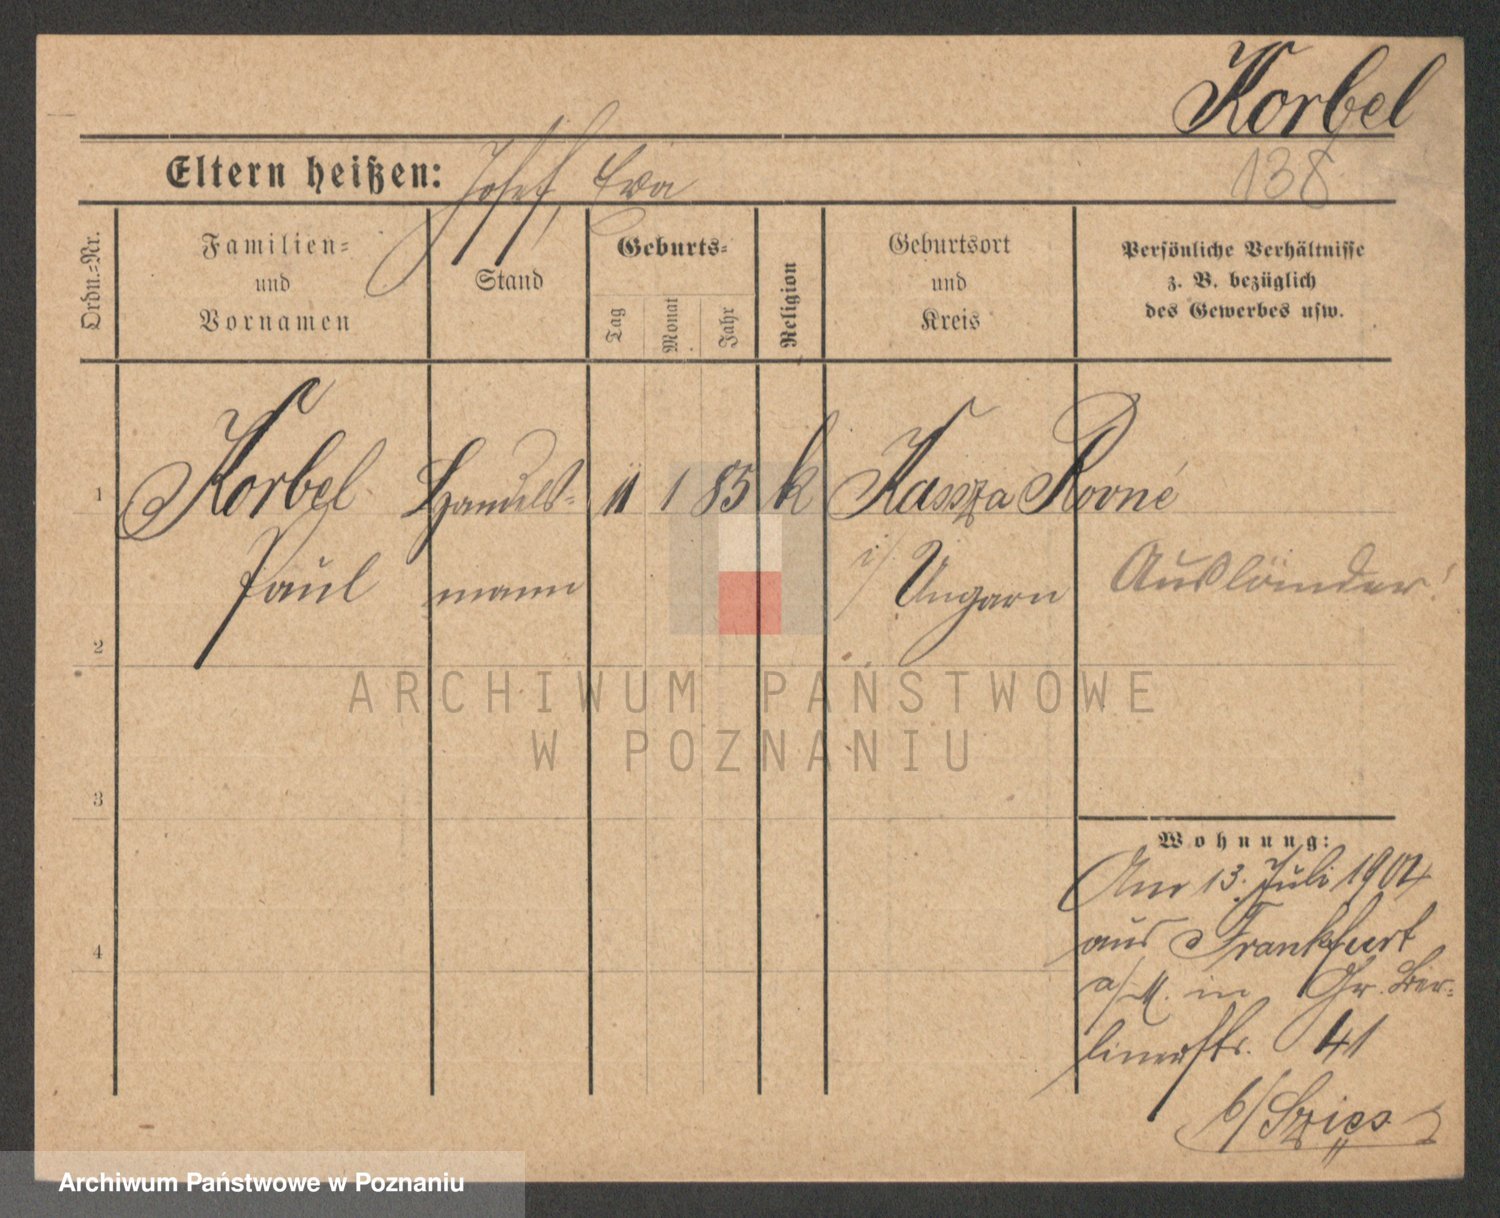 Korbel
138
Eltern heißen: Josef, Eva
Ordn.=Nr.
Familien= und Vornamen
Stand
Geburts=
Tag
Monat
Jahr
Religion
Geburtsort und Kreis
Persönliche Verhältnisse z. B. bezüglich des Gewerbes usw.
1
Korbel Handels= 11 1 85 k Kassza Rovné
Paul mann i/ Ungarn Ausländer!
2
3
4
Wohnung:
Am 13. Juli 1904
aus Frankfurt
a/M. in Gr. Ber=
linerstr. 41
b/
ARCHIWUM PAŃSTWOWE
W POZNANIU
Archiwum Państwowe w Poznaniu